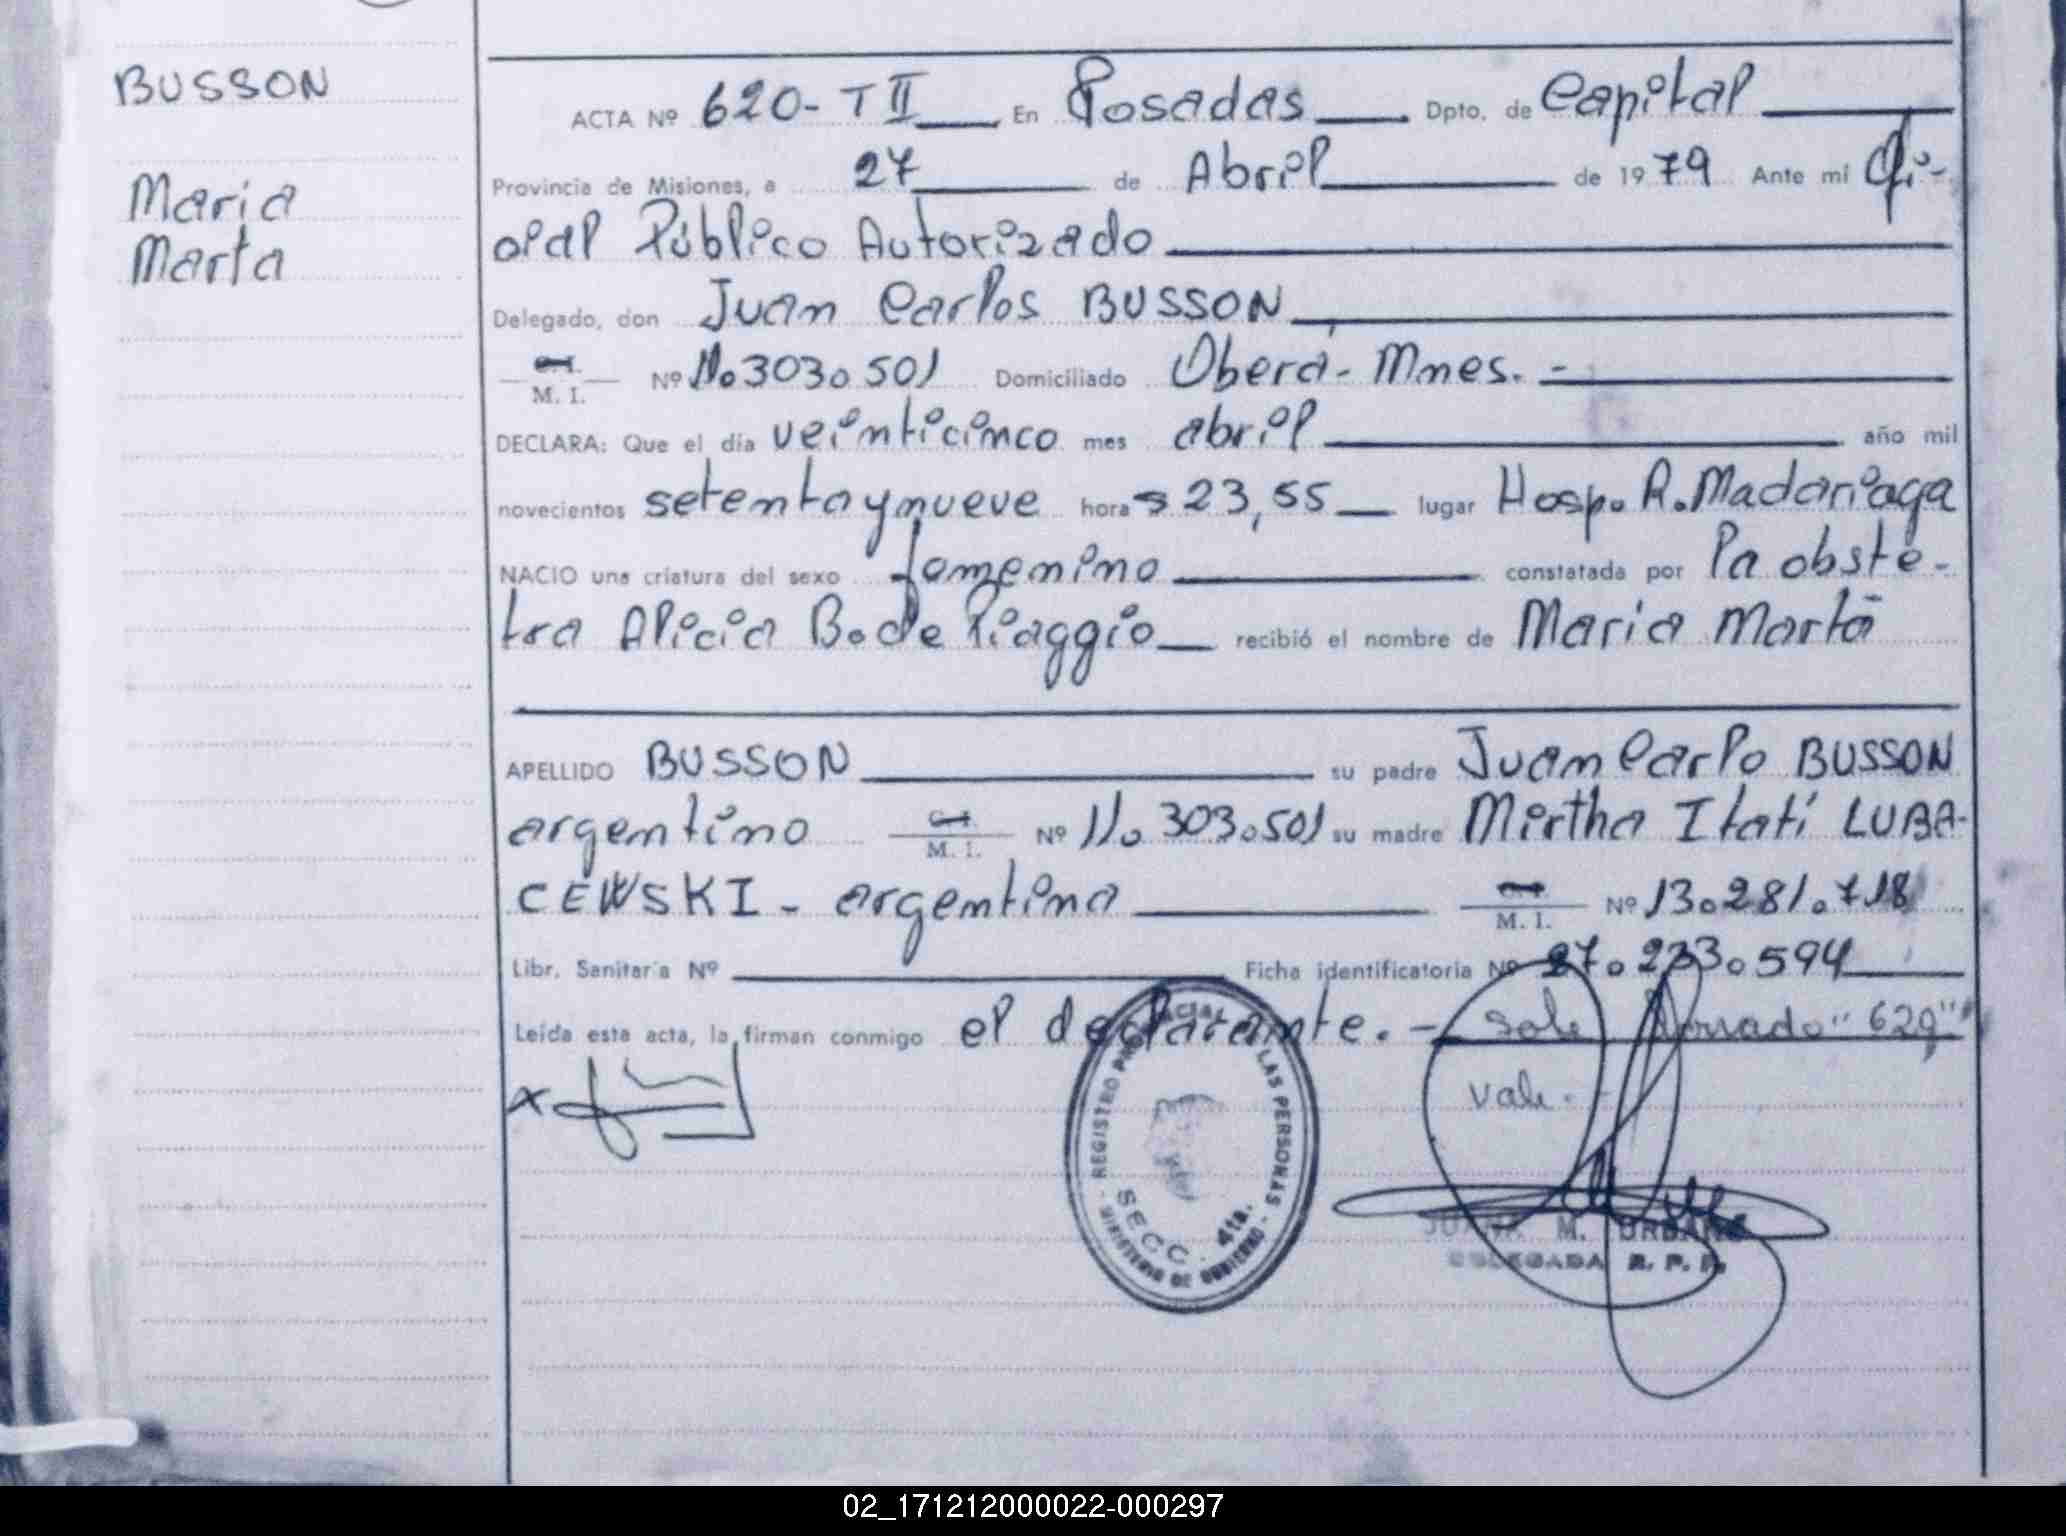 BUSSON
Maria
Marta
ACTA Nº 620- T II En Posadas Dpto. de Capital
Provincia de Misiones, a 27 de Abril de 1979 Ante mi Ofi-
cial Público Autorizado
Delegado, don Juan Carlos BUSSON
C.I. M. I. Nº 11.303.501 Domiciliado Oberá- Mnes. -
DECLARA: Que el día veinticinco mes abril año mil
novecientos setenta y nueve horas 23,55 lugar Hosp. R. Madariaga
NACIO una criatura del sexo femenino constatada por la obste-
tra Alicia B. de Piaggio recibió el nombre de Maria Marta
APELLIDO BUSSON su padre Juan Carlo BUSSON
argentino C.I. M. I. Nº 11.303.501 su madre Mirtha Itatí LUBA-
CEWSKI - argentina C.I. M. I. Nº 13.281.718
Libr. Sanitaria Nº Ficha identificatoria Nº 27.233.594
Leída esta acta, la firman conmigo el declarante. - Sobre borrado "629"
vale.-
REGISTRO PROVINCIAL DE LAS PERSONAS
SECC. 4ta.
MINISTERIO DE GOBIERNO
JUANA M. URBANO
DELEGADA R. P. P.
02_171212000022-000297